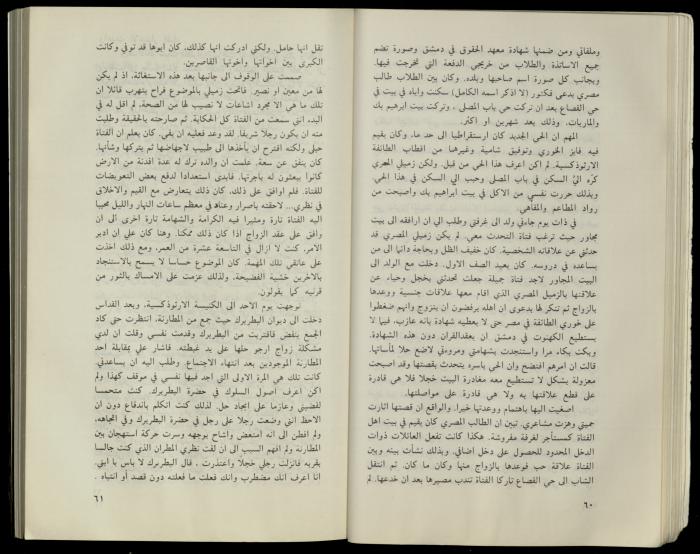 وملفاتي ومن ضمنها شهادة معهد الحقوق في دمشق وصورة تضم
جميع الاساتذة والطلاب من خريجي الدفعة التي تخرجت فيها.
وبجانب كل صورة اسم صاحبها وبلده. وكان بين الطلاب طالب
مصري يدعى فكتور (لا اذكر اسمه الكامل) سكنت واياه في بيت في
حي القصاع بعد ان تركت حي باب المصلى ، وتركت بيت ابراهيم بك
والماريات، وذلك بعد شهرين او اكثر.
المهم ان الحي الجديد كان ارستقراطيا الى حد ما، وكان يقيم
فيه فايز الخوري وتوفيق شامية وغيرهما من اقطاب الطائفة
الارثوذكسية. لم اكن اعرف هذا الحي من قبل. ولكن زميلي المصري
كره اليّ السكن في باب المصلى وحبب الي السكن في هذا الحي.
وبذلك حررت نفسي من الاكل في بيت ابراهيم بك واصبحت من
رواد المطاعم والمقاهي.
في ذات يوم جاءني ولد الى غرفتي وطلب الي ان ارافقه الى بيت
مجاور حيث ترغب فتاة التحدث معي. لم يكن زميلي المصري قد
حدثني عن علاقاته الشخصية. كان خفيف الظل وبحاجة دائما الى من
يساعده في دروسه. كان بعيد الصف الاول. دخلت مع الولد الى
البيت المجاور لاجد فتاة جميلة جعلت تحدثني بخجل وحياء عن
علاقتها بالزميل المصري الذي اقام معها علاقات جنسية ووعدها
بالزواج ثم تنكر لها بدعوى ان اهله يرفضون ان يتزوج وانهم ضغطوا
على خوري الطائفة في مصر حتى لا يعطيه شهادة بانه عازب، فيما لا
يستطيع الكهنوت في دمشق ان يعقد القران دون هذه الشهادة.
وبكت بكاء مرا واستنجدت بشهامتي ومروءتي لاضع حلا لمأساتها.
قالت ان امرهم افتضح وان الحي باسره يتحدث بقصتها وقد اصبحت
معزولة بشكل لا تستطيع معه مغادرة البيت خجلا فلا هي قادرة
على قطع علاقتها به ولا هي قادرة على مواصلتها.
اصغيت اليها باهتمام ووعدتها خيرا. والواقع ان قصتها اثارت
حميتي وهزت مشاعري. تبين ان الطالب المصري كان يقيم في بيت اهل
الفتاة كمستأجر لغرفة مفروشة. هكذا كانت تفعل العائلات ذوات
الدخل المحدود للحصول على دخل اضافي. وبذلك نشأت بينه وبين
الفتاة علاقة حب فوعدها بالزواج منها وكان ما كان. ثم انتقل
الشاب الى حي القصاع تاركا الفتاة تندب مصيرها بعد ان خدعها. لم
٦٠
تقل انها حامل. ولكني ادركت انها كذلك. كان ابوها قد توفي وكانت
الكبرى بين اخواتها واخوتها القاصرين.
صممت على الوقوف الى جانبها بعد هذه الاستغاثة. اذ لم يكن
لها من معين او نصير. فاتحت زميلي بالموضوع فراح يتهرب قائلا ان
تلك ما هي الا مجرد اشاعات لا نصيب لها من الصحة. لم اقل له في
البدء انني سمعت من الفتاة كل الحكاية. ثم صارحته بالحقيقة وطلبت
منه ان يكون رجلا شريفا. لقد وعد فعليه ان يفي. كان يعلم ان الفتاة
حبلى ولكنه اقترح ان يأخذها الى طبيب لاجهاضها ثم يتركها وشأنها.
كان ينفق عن سعة. علمت ان والده ترك له عدة افدنة من الارض
كانوا يبعثون له باجرتها. فابدى استعدادا لدفع بعض التعويضات
للفتاة. فلم اوافق على ذلك. كان ذلك يتعارض مع القيم والاخلاق
في نظري... لاحقته باصرار وعناد في معظم ساعات النهار والليل محببا
اليه الفتاة تارة ومثيرا فيه الكرامة والشهامة تارة اخرى الى ان
وافق على عقد الزواج اذا كان ذلك ممكنا. وهنا كان علي ان ادبر
الامر. كنت لا ازال في التاسعة عشرة من العمر، ومع ذلك اخذت
على عاتقي تلك المهمة. كان الموضوع حساسا لا يسمح بالاستنجاد
بالاخرين خشية الفضيحة. ولذلك عزمت على الامساك بالثور من
قرنيه كما يقولون.
توجهت يوم الاحد الى الكنيسة الارثوذكسية، وبعد القداس
دخلت الى ديوان البطريرك حيث جمع من المطارنة. انتظرت حتى كاد
الجمع ينفض فاقتربت من البطريرك وقدمت نفسي وقلت ان لدي
مشكلة زواج ارجو حلها على يد غبطته. فاشار علي بمقابلة احد
المطارنة الموجودين بعد انتهاء الاجتماع. وطلب اليه ان يساعدني.
كانت تلك هي المرة الاولى التي اجد فيها نفسي في موقف كهذا ولم
اكن اعرف اصول السلوك في حضرة البطريرك. كنت متحمسا
لقضيتي وعازما على ايجاد حل. لذلك كنت اتكلم باندفاع دون ان
الاحظ انني وضعت رجلا على رجل في حضرة البطريرك وفي اتجاهه.
ولم افطن الى انه امتعض واشاح بوجهه وسرت حركة استهجان بين
المطارنة ولم افهم السبب الى ان لفت نظري المطران الذي كنت جالسا
بقربه فانزلت رجلي خجلا واعتذرت ، قال البطريرك لا باس يا ابني.
انا اعرف انك مضطرب وانك فعلت ما فعلته دون قصد أو انتباه .
٦١